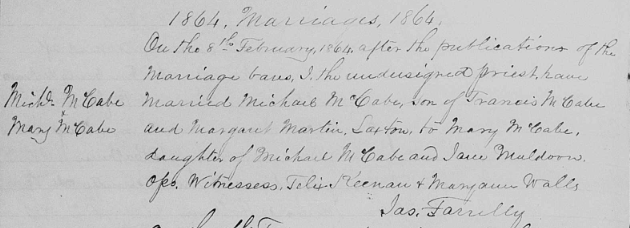 1864. Marriages, 1864.
On the 8th February, 1864, after the publications of the
Marriage bans, I, the undersigned priest, have
Michl. McCabe
&
Mary McCabe
married Michael McCabe, son of Francis McCabe
and Margaret Martin, Saxton, to Mary McCabe,
daughter of Michael McCabe and Jane Muldoon.
Witnessess, Felix Keenan & Maryann Walls
Jas. Farrelly